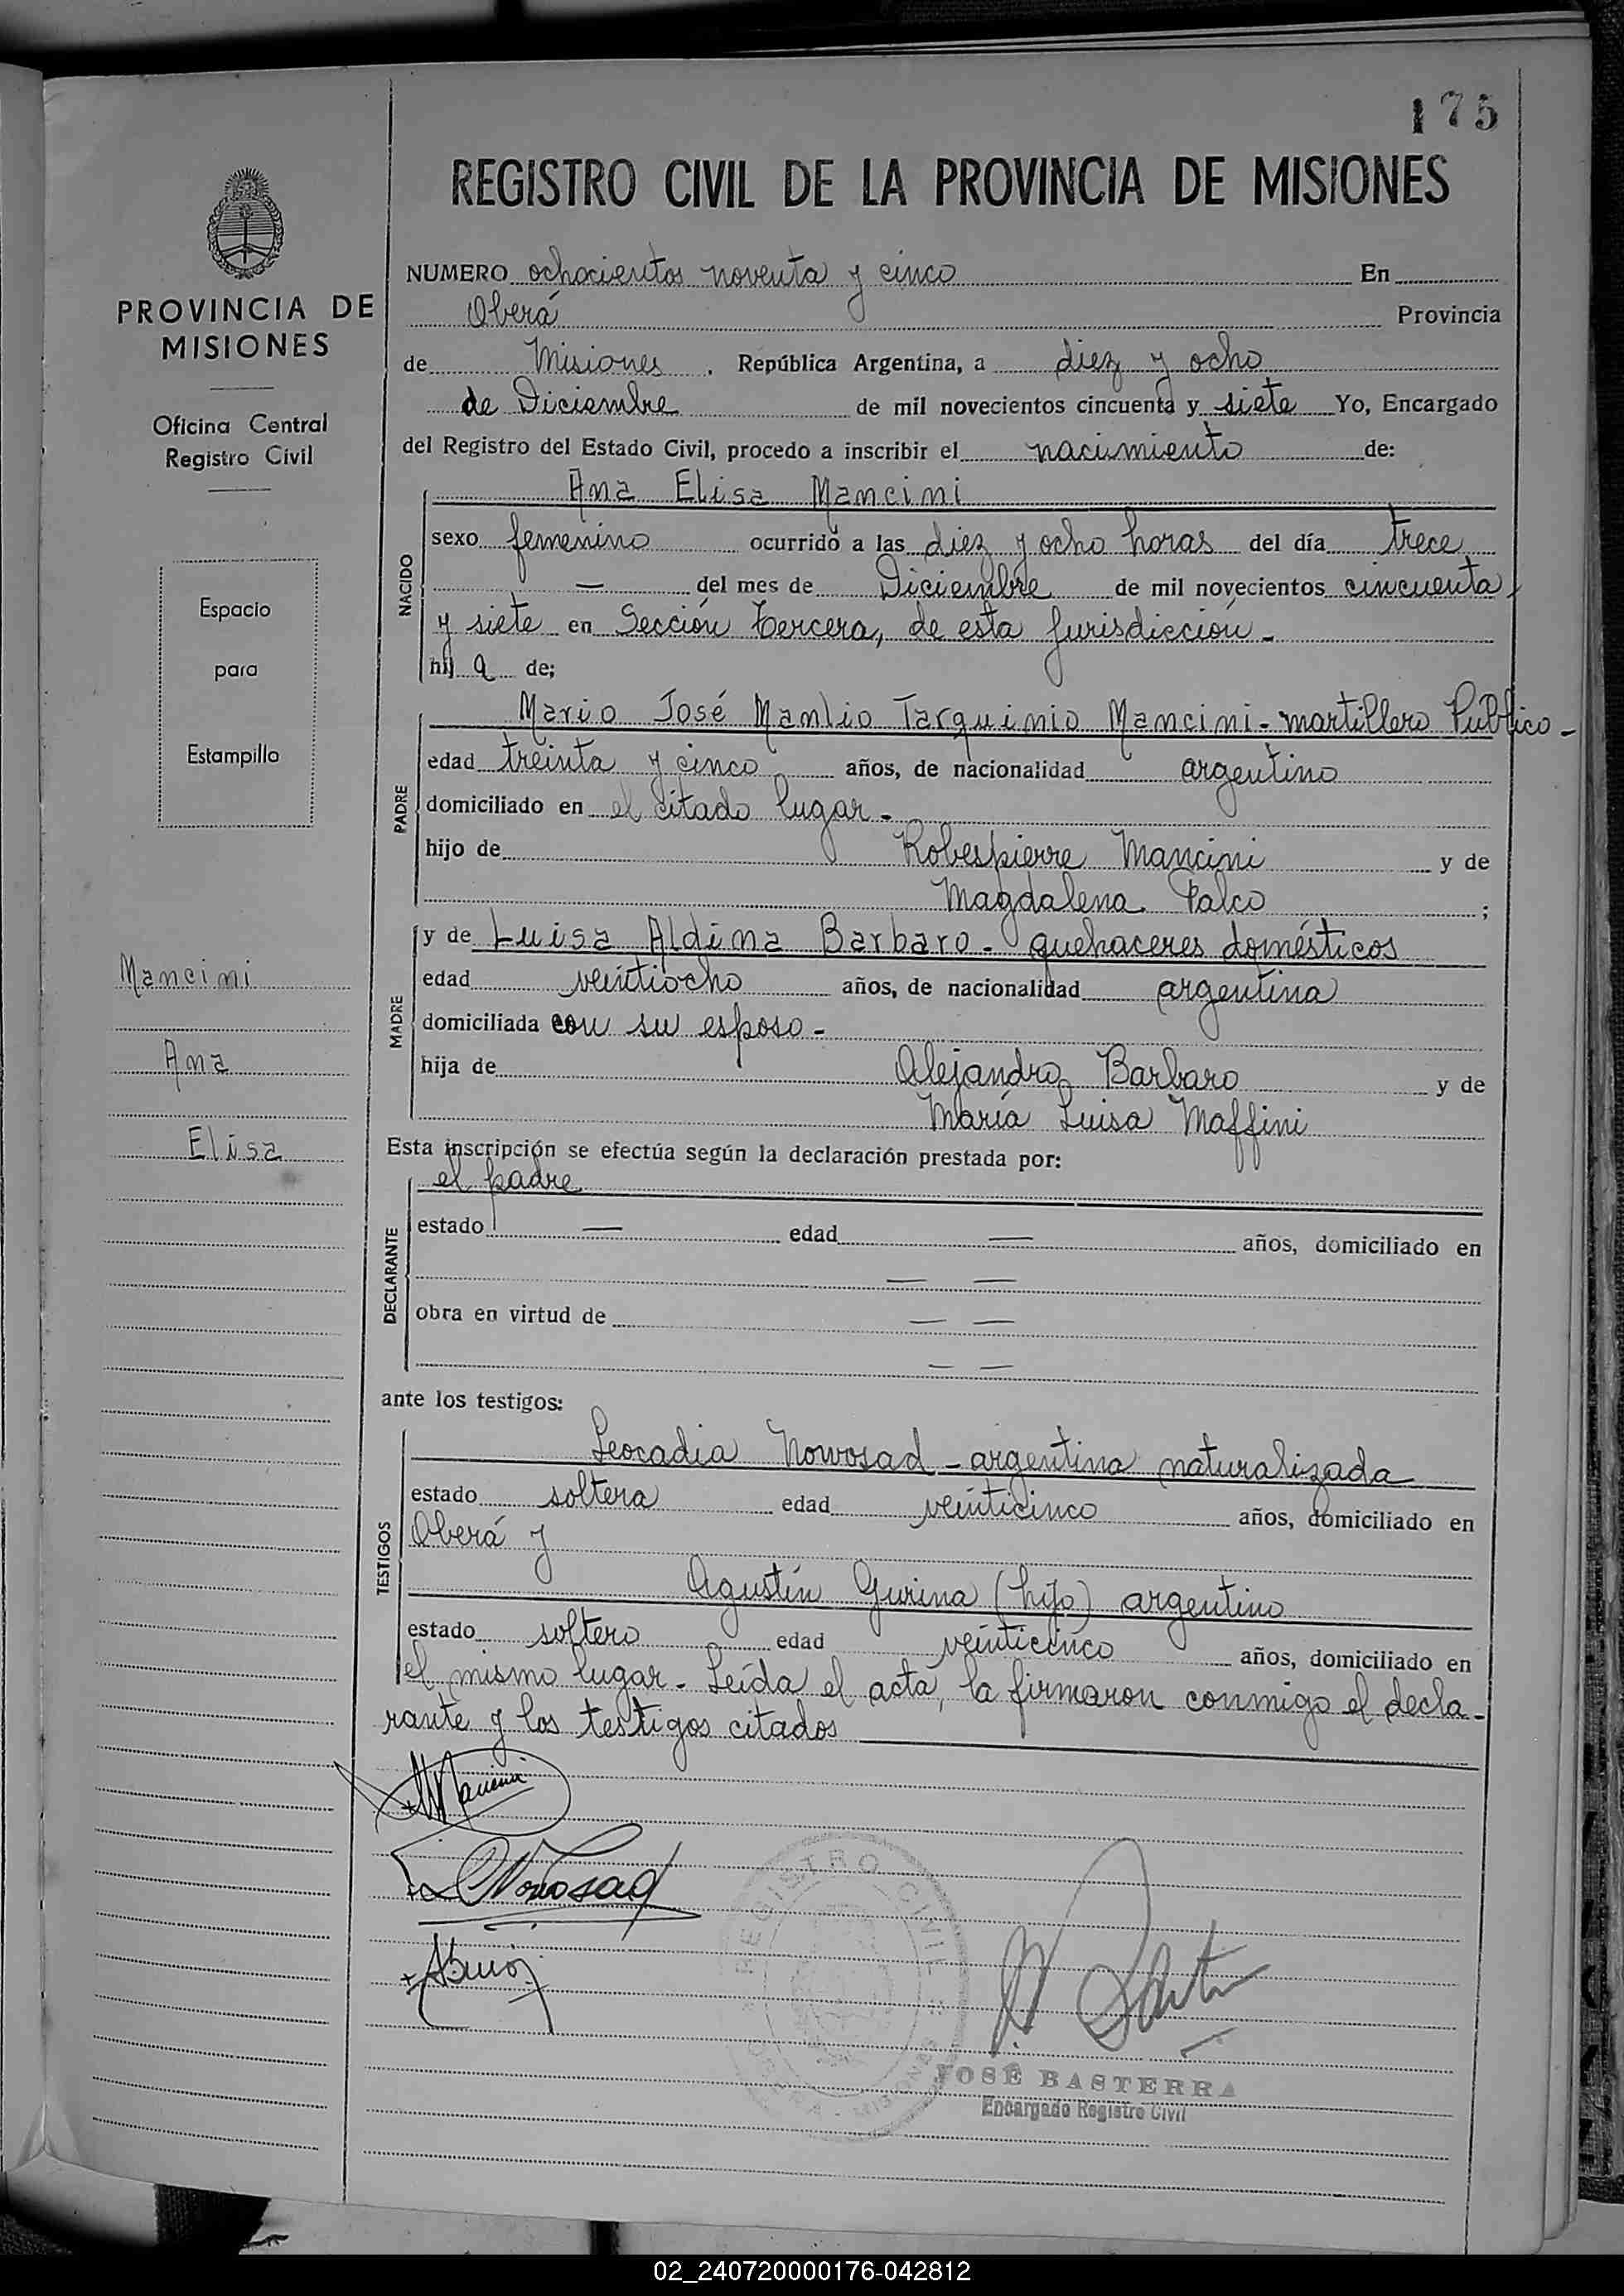 175
REGISTRO CIVIL DE LA PROVINCIA DE MISIONES
PROVINCIA DE
MISIONES
Oficina Central
Registro Civil
Espacio
para
Estampillo
Mancini
Ana
Elisa
NUMERO ochocientos noventa y cinco En
Oberá Provincia
de Misiones , República Argentina, a diez y ocho
de Diciembre de mil novecientos cincuenta y siete Yo, Encargado
del Registro del Estado Civil, procedo a inscribir el nacimiento de:
NACIDO
Ana Elisa Mancini
sexo femenino ocurrido a las diez y ocho horas del día trece
— del mes de Diciembre de mil novecientos cincuenta
y siete en Sección tercera, de esta jurisdicción -
hij a de;
PADRE
Mario José Manlio Tarquinio Mancini - martillero Público -
edad treinta y cinco años, de nacionalidad argentino
domiciliado en el citado lugar -
hijo de Robespierre Mancini y de
Magdalena Palco ;
MADRE
y de Luisa Aldina Barbaro - quehaceres domésticos
edad veintiocho años, de nacionalidad argentina
domiciliada con su esposo -
hija de Alejandro Barbaro y de
María Luisa Maffini
Esta inscripción se efectúa según la declaración prestada por:
DECLARANTE
el padre
estado — edad — años, domiciliado en
— —
obra en virtud de — —
— —
ante los testigos:
TESTIGOS
Leocadia Nowosad - argentina naturalizada
estado soltera edad veinticinco años, domiciliado en
Oberá y
Agustín Gurina (hijo) argentino
estado soltero edad veinticinco años, domiciliado en
el mismo lugar - Leída el acta, la firmaron conmigo el decla-
rante y los testigos citados
Mancini
Nowosad
REGISTRO CIVIL
OBERA - MISIONES
JOSÉ BASTERRA
Encargado Registro Civil
02_240720000176-042812